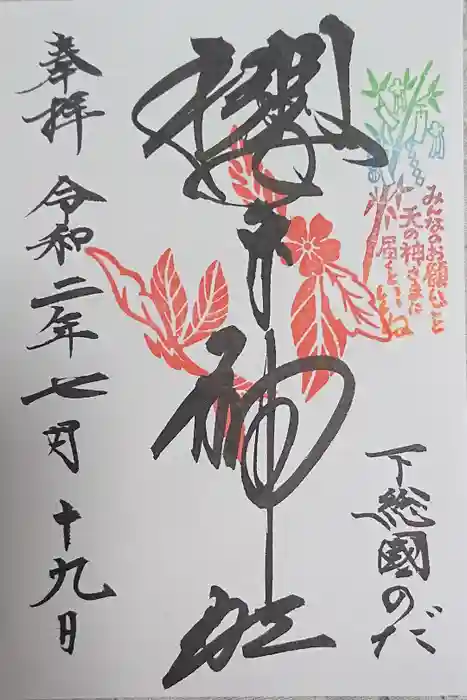 みんなのお願いごと
天の神さまに
届くといいね
下総國のだ
櫻木神社
奉拝 令和二年七月十九日